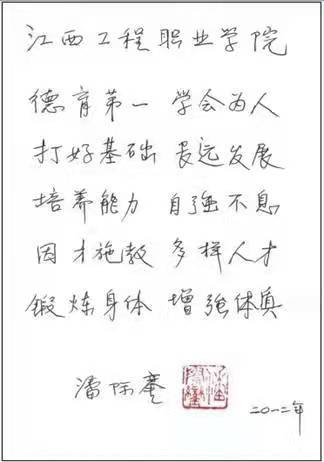 江西工程职业学院
德育第一 学会为人
打好基础 长远发展
培养能力 自强不息
因才施教 多样人才
锻炼身体 增强体质
潘际銮
二〇一二年